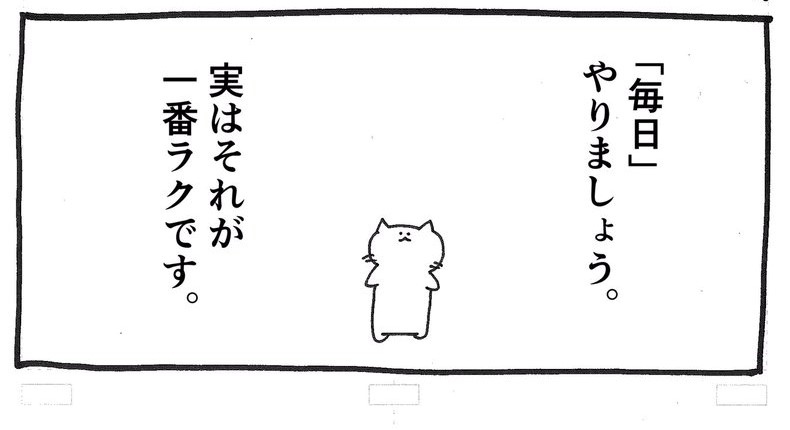 「毎日」
やりましょう。
実はそれが
一番ラクです。